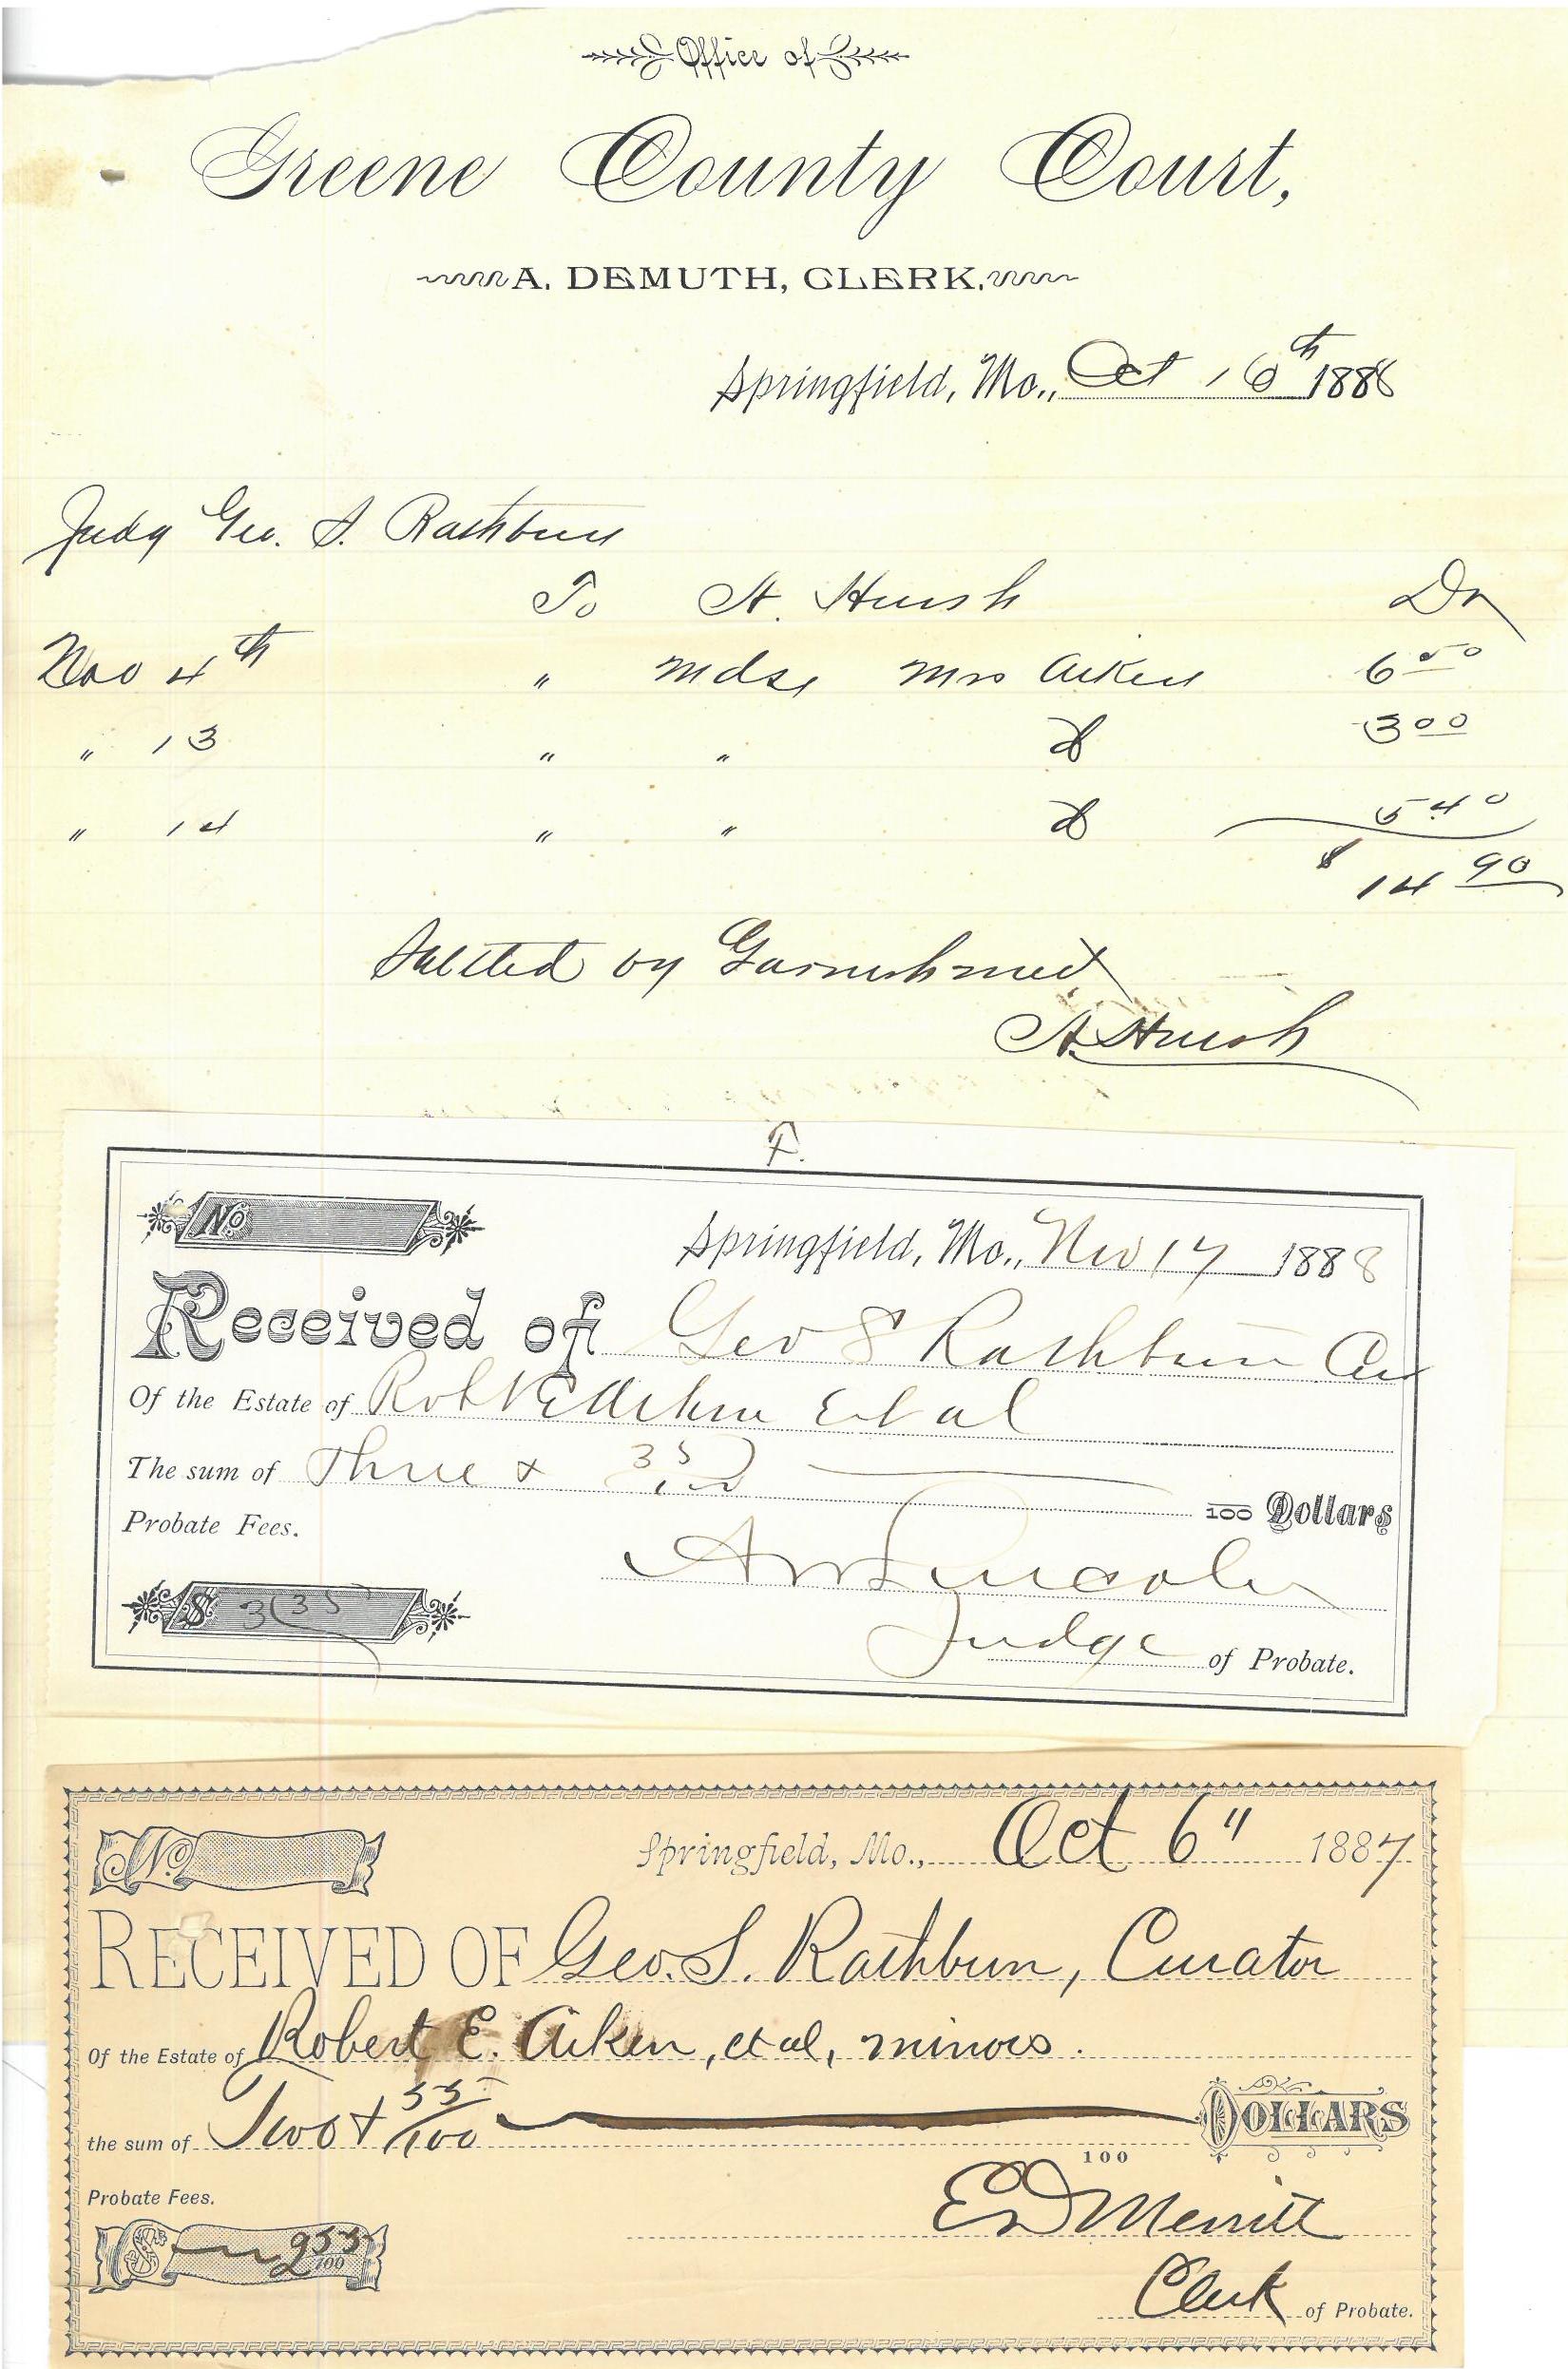 Office of
Greene County Court,
A. DEMUTH, CLERK.
Springfield, Mo., Oct 16th 1888
Judg Geo. S. Rathbun
To A. Hursh Dr
Nov 4th " Mdse Mrs Aiken 6 50
" 13 " " do 3 00
" 14 " " do 5 40
$ 14 90
Settled by Garnishment
A. Hursh
F.
No
Springfield, Mo., Nov 17 1888
Received of Geo S Rathbun Cur
Of the Estate of Robt E Aiken Et al
The sum of Three & 35/100
100 Dollars
Probate Fees.
A W Lincoln
$ 3 35
Judge of Probate.
No
Springfield, Mo., Oct 6" 1887
RECEIVED OF Geo. S. Rathbun, Curator
Of the Estate of Robert E. Aiken, et al, minors.
the sum of Two & 55/100 DOLLARS
100
Probate Fees.
E D Merritt
$ 2 55 100
Clerk of Probate.